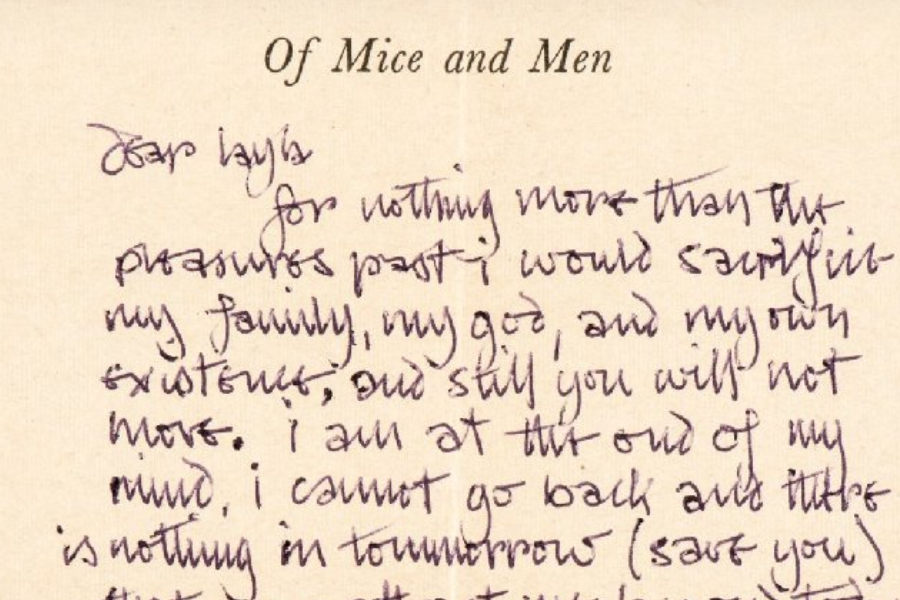 Of Mice and Men
dear layla
for nothing more than the
pleasures past i would sacrifice
my family, my god, and my own
existence, and still you will not
move. i am at the end of my
mind, i cannot go back and there
is nothing in tommorrow (save you)